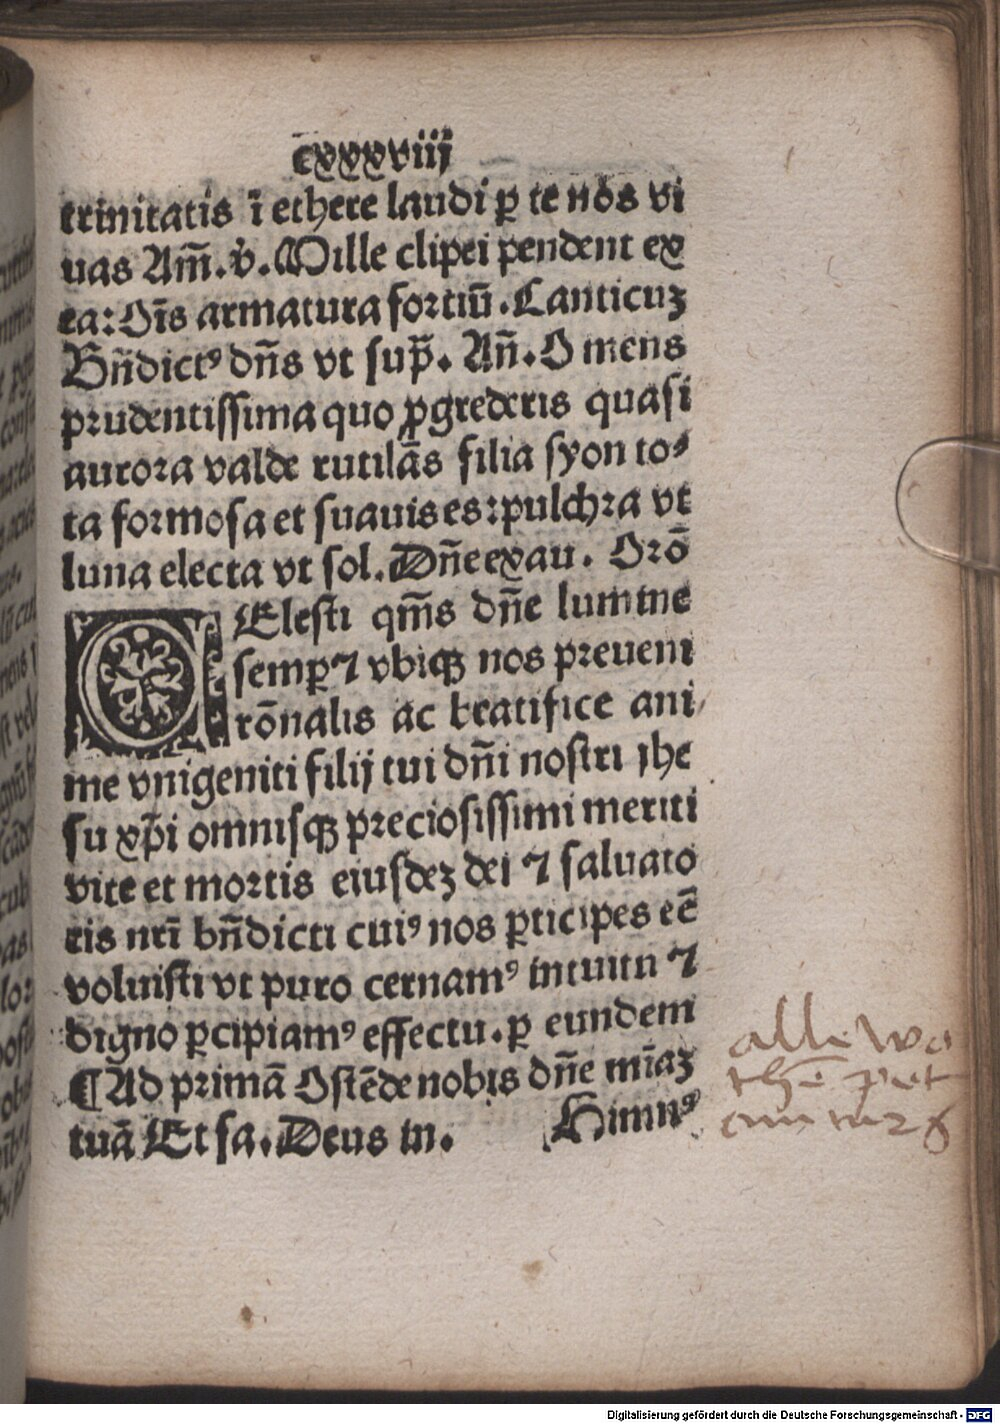 cxxxviij
trinitatis ī ethere laudi ꝑ te nōs vi
uas Am̄. v̇. Mille clipei pendent ex
ea: Oīs armatura fortiū. Canticuꝫ
Bn̄dictꝰ dn̄s vt sup̄. An̄. O mens
prudentissima quo ꝓgrederis quasi
aurora valde rutilās filia syon to⸗
ta formosa et suauis es: pulchra vt
luna electa vt sol. Dn̄e exau. Orō
CElesti qm̄s dn̄e lumine
semꝑ ⁊ vbiqꝫ nos preueni
rōnalis ac beatifice ani
me vnigeniti filij tui dn̄i nostri ihe
su xp̄i omnisqꝫ preciosissimi meriti
vite et mortis eiusdeꝫ dei ⁊ saluato
ris nr̄i bn̄dicti cuiꝰ nos ꝑticipes eē
voluisti vt puro cernamꝰ intuitu ⁊
digno ꝑcipiamꝰ effectu. ꝑ eundem
¶Ad primā Ostēde nobis dn̄e mīaꝫ
tuā Et sa. Deus in. Himnꝰ
alle